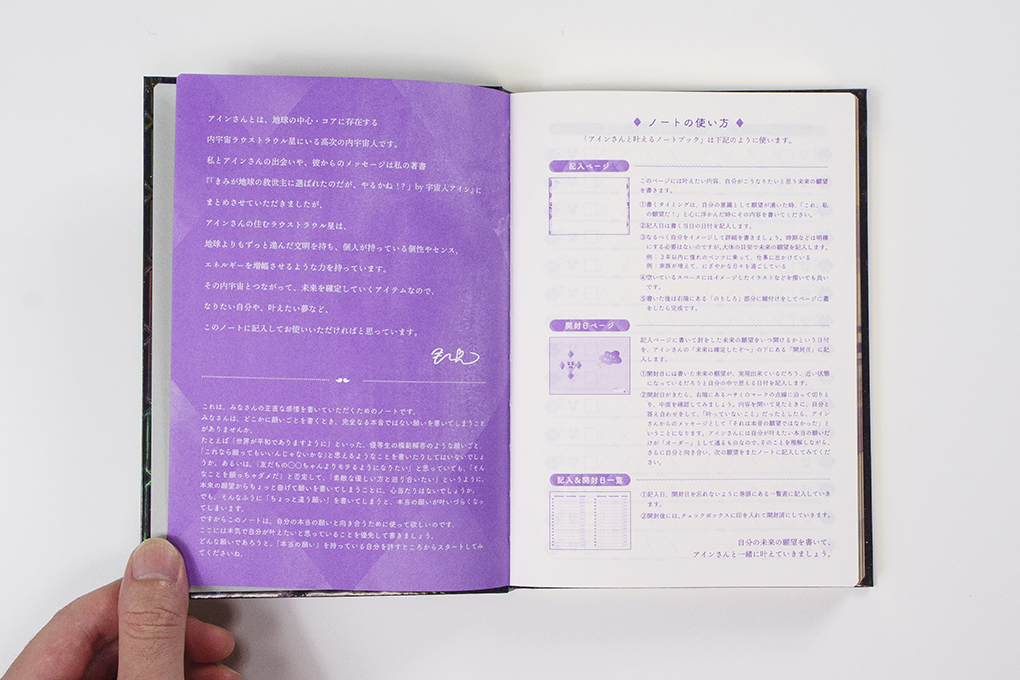 アインさんとは、地球の中心・コアに存在する
内宇宙ラウストラウル星にいる高次の内宇宙人です。
私とアインさんの出会いや、彼からのメッセージは私の著書
『「きみが地球の救世主に選ばれたのだが、やるかね!?」by 宇宙人アイン』に
まとめさせていただきましたが、
アインさんの住むラウストラウル星は、
地球よりもずっと進んだ文明を持ち、個人が持っている個性やセンス、
エネルギーを増幅させるような力を持っています。
その内宇宙とつながって、未来を確定していくアイテムなので、
なりたい自分や、叶えたい夢など、
このノートに記入してお使いいただければと思っています。
これは、みなさんの正直な感情を書いていただくためのノートです。
みなさんは、どこかに願いごとを書くとき、完全なる本音ではない願いを書いてしまうこと
がありませんか。
たとえば「世界が平和でありますように」といった、優等生の模範解答のような願いごと、
「これなら願ってもいいんじゃないかな」と思えるようなことを書いたりしてはいないでしょ
うか。あるいは、「友だちの○○ちゃんよりモテるようになりたい」と思っていても、「そん
なことを願っちゃダメだ」と否定して、「素敵な優しい方と巡り合いたい」というように、
本来の願望からちょっと曲げて願いを書いてしまうことに、心当たりはないでしょうか。
でも、そんなふうに「ちょっと違う願い」を書いてしまうと、本当の願いが叶いづらくなっ
てしまいます。
ですからこのノートは、自分の本当の願いと向き合うために使って欲しいのです。
ここには本気で自分が叶えたいと思っていることを優先して書きましょう。
どんな願いであろうと、「本当の願い」を持っている自分を許すところからスタートしてみ
てくださいね。
ノートの使い方
「アインさんと叶えるノートブック」は下記のように使います。
記入ページ
このページには叶えたい内容、自分がこうなりたいと思う未来の願望
を書きます。
①書くタイミングは、自分の意識として願望が湧いた時、「これ、私
の願望だ!」と心に浮かんだ時にその内容を書いてください。
②記入日は書く当日の日付を記入します。
③なるべく自分をイメージして詳細を書きましょう。時間などは明確
にする必要はないのですが、大体の目安で未来の願望を記入します。
例 3年以内に憧れのベンツに乗って、仕事に出かけている
例 家族が増えて、にぎやかな日々を過ごしている
④空いているスペースにはイメージしたイラストなどを描いても良い
です。
⑤書いた後は右端にある「のりしろ」部分に糊付けをしてページに蓋
をしたら完成です。
開封日ページ
記入ページに書いて封をした未来の願望をいつ開けるかという日付
を、アインさんの「未来は確定したぞ〜」の下にある「開封日」に記
入します。
①開封日には書いた未来の願望が、実現出来ているだろう、近い状態
になっているだろうと自分の中で思える日付を記入します。
②開封日がきたら、右端にあるハサミのマークの点線に沿って切りと
り、中面を確認してみましょう。内容を開いて見たときに、自分と
答え合わせをして、「叶っていないこと」だったとしたら、アイン
さんからのメッセージとして「それは本音の願望ではなかった」と
いうことになります。アインさんには自分が叶えたい本当の願いだ
けが「オーダー」として通るものなので、そのことを理解しながら、
さらに自分と向き合い、次の願望をまたノートに記入してみてくだ
さい。
記入&開封日一覧
①記入日、開封日を忘れないように巻頭にある一覧表に記入していき
ます。
②開封後には、チェックボックスに印を入れて開封済にしていきます。
自分の未来の願望を書いて、
アインさんと一緒に叶えていきましょう。